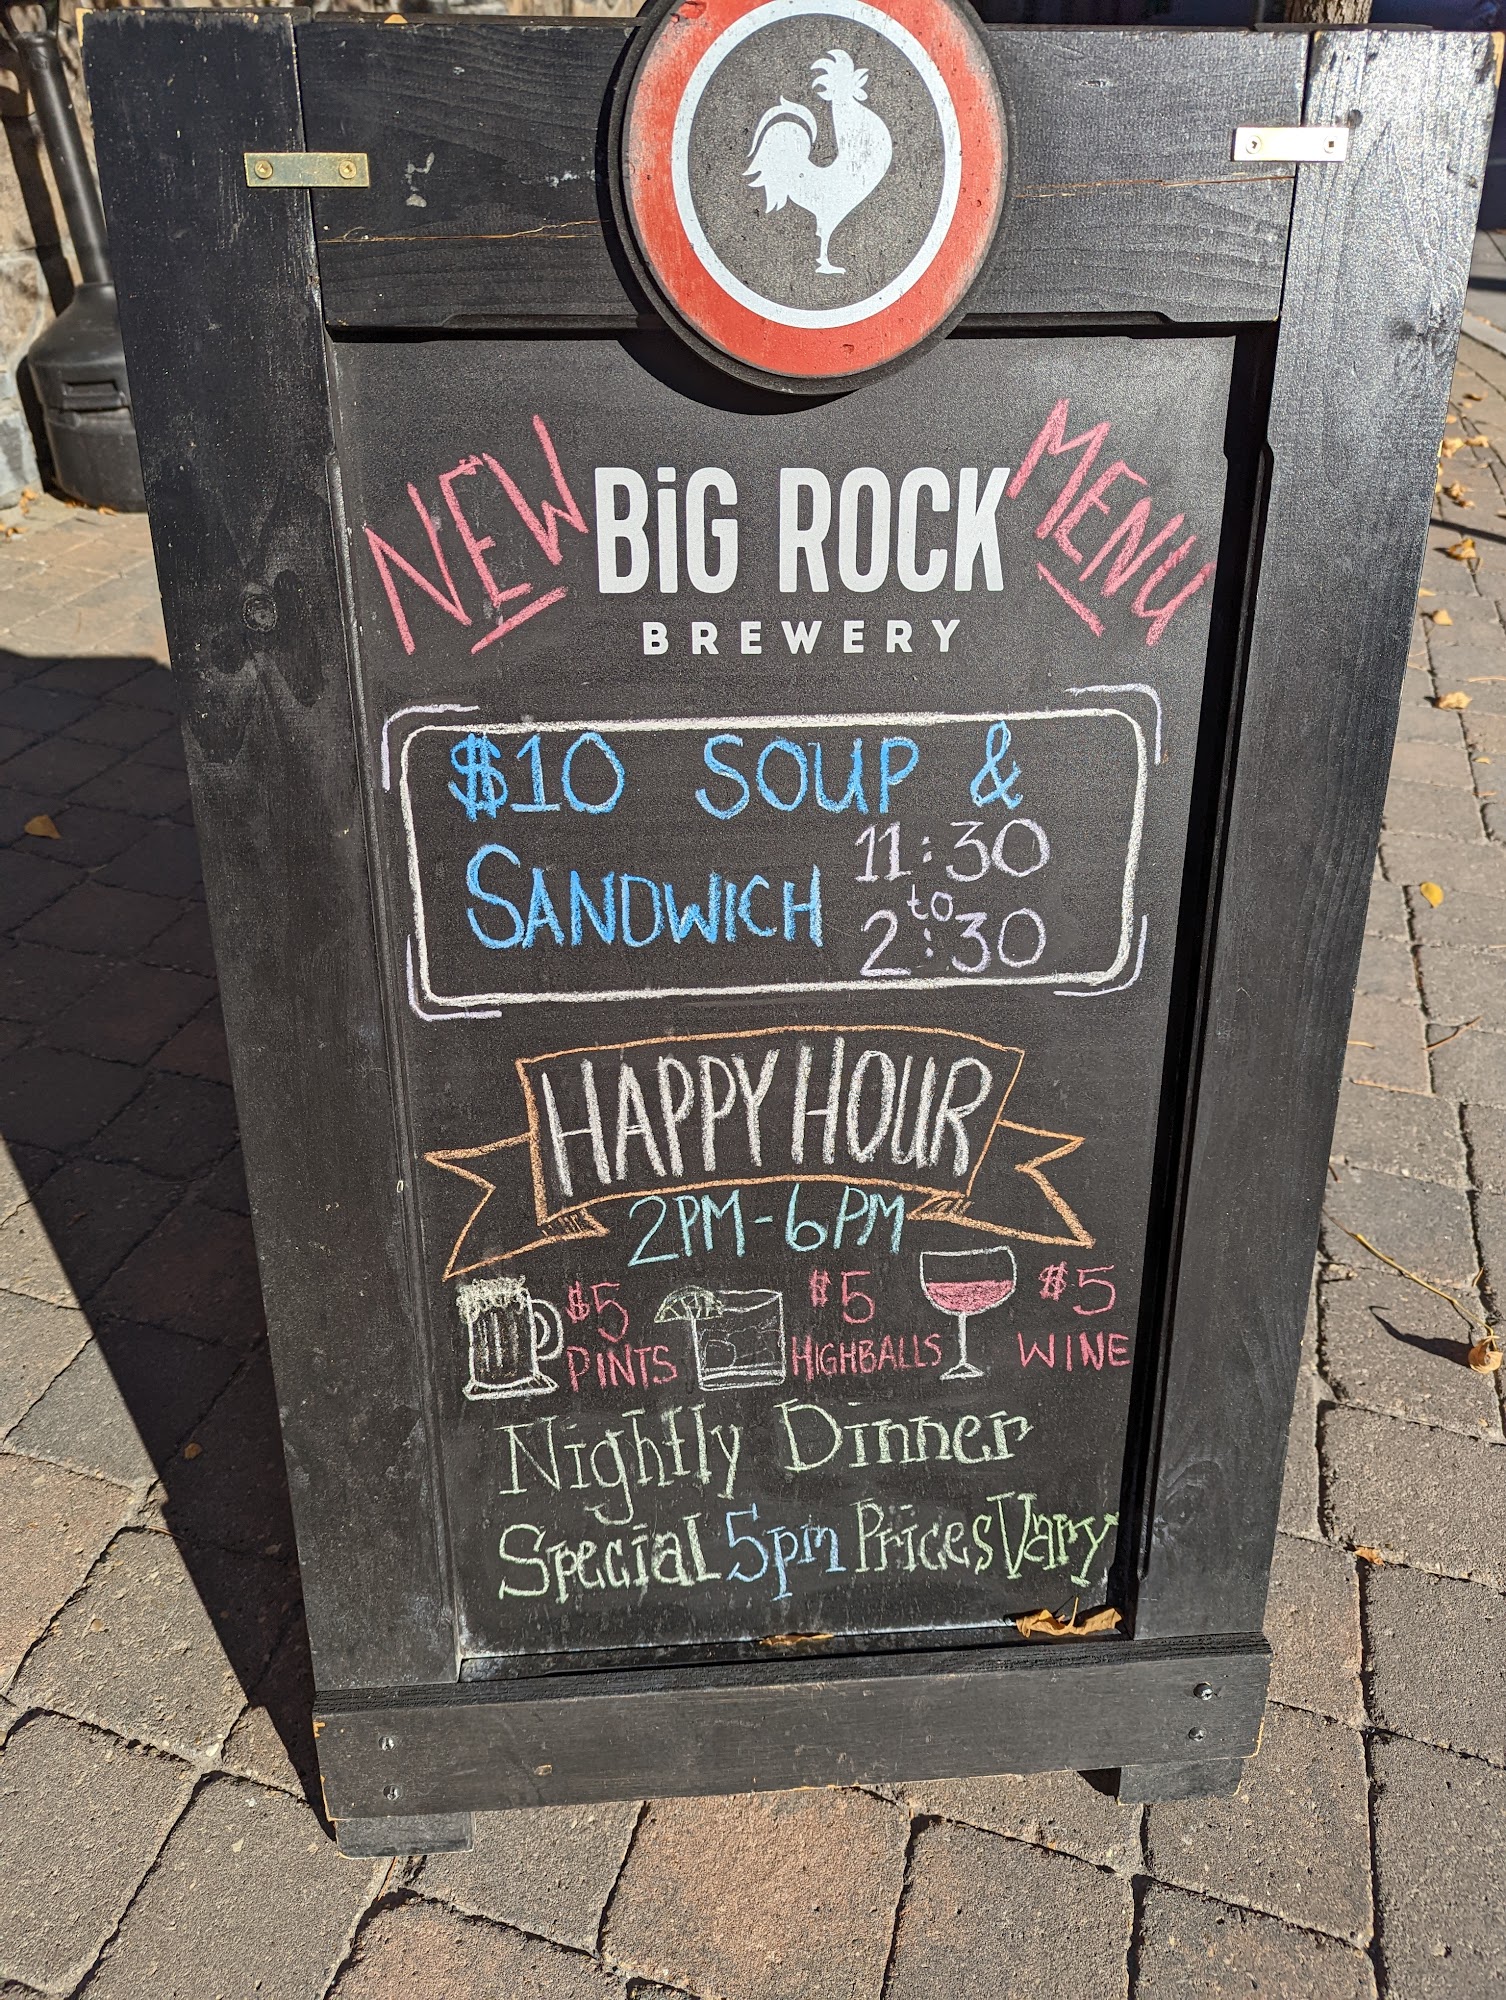 NEW BiG ROCK MENU
BREWERY
$10 SOUP &
SANDWICH 11:30
to
2:30
HAPPY HOUR
2PM-6PM
$5 $5 $5
PINTS HIGHBALLS WINE
Nightly Dinner
Special 5pm Prices Vary